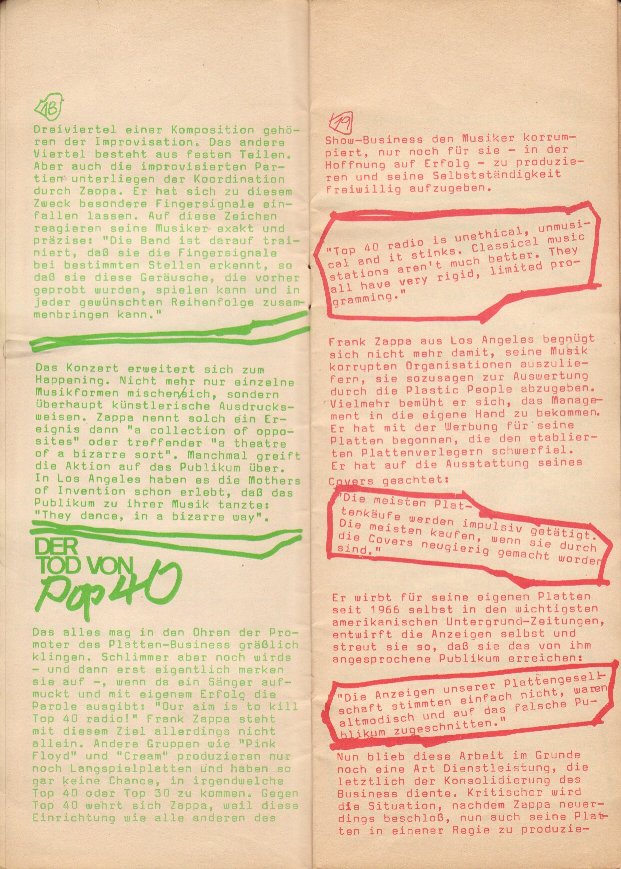 18
Dreiviertel einer Komposition gehö-
ren der Improvisation. Das andere
Viertel besteht aus festen Teilen.
Aber auch die improvisierten Par-
tien unterliegen der Koordination
durch Zappa. Er hat sich zu diesem
Zweck besondere Fingersignale ein-
fallen lassen. Auf diese Zeichen
reagieren seine Musiker exakt und
präzise: "Die Band ist darauf trai-
niert, daß sie die Fingersignale
bei bestimmten Stellen erkennt, so
daß sie diese Geräusche, die vorher
geprobt wurden, spielen kann und in
jeder gewünschten Reihenfolge zusam-
menbringen kann."
Das Konzert erweitert sich zum
Happening. Nicht mehr nur einzelne
Musikformen mischen sich, sondern
überhaupt künstlerische Ausdrucks-
weisen. Zappa nennt solch ein Er-
eignis dann "a collection of oppo-
sites" oder treffender "a theatre
of a bizarre sort". Manchmal greift
die Aktion auf das Publikum über.
In Los Angeles haben es die Mothers
of Invention schon erlebt, daß das
Publikum zu ihrer Musik tanzte:
"They dance, in a bizarre way".
DER
TOD VON
Pop 40
Das alles mag in den Ohren der Pro-
moter des Platten-Business gräßlich
klingen. Schlimmer aber noch wirds
- und dann erst eigentlich merken
sie auf -, wenn da ein Sänger auf-
muckt und mit eigenem Erfolg die
Parole ausgibt: "Our aim is to kill
Top 40 radio!" Frank Zappa steht
mit diesem Ziel allerdings nicht
allein. Andere Gruppen wie "Pink
Floyd" und "Cream" produzieren nur
noch Langspielplatten und haben so
gar keine Chance, in irgendwelche
Top 40 oder Top 30 zu kommen. Gegen
Top 40 wehrt sich Zappa, weil diese
Einrichtung wie alle anderen des
19
Show-Business den Musiker korrum-
piert, nur noch für sie - in der
Hoffnung auf Erfolg - zu produzie-
ren und seine Selbstständigkeit
freiwillig aufzugeben.
"Top 40 radio is unethical, unmusi-
cal and it stinks. Classical music
stations aren't much better. They
all have very rigid, limited pro-
gramming."
Frank Zappa aus Los Angeles begnügt
sich nicht mehr damit, seine Musik
korrupten Organisationen auszulie-
fern, sie sozusagen zur Auswertung
durch die Plastic People abzugeben.
Vielmehr bemüht er sich, das Manage-
ment in die eigene Hand zu bekommen.
Er hat mit der Werbung für seine
Platten begonnen, die den etablier-
ten Plattenverlegern schwerfiel.
Er hat auf die Ausstattung seines
Covers geachtet:
"Die meisten Plat-
tenkäufe werden impulsiv getätigt.
Die meisten kaufen, wenn sie durch
die Covers neugierig gemacht worden
sind."
Er wirbt für seine eigenen Platten
seit 1966 selbst in den wichtigsten
amerikanischen Untergrund-Zeitungen,
entwirft die Anzeigen selbst und
streut sie so, daß sie das von ihm
angesprochene Publikum erreichen:
"Die Anzeigen unserer Plattengesell-
schaft stimmten einfach nicht, waren
altmodisch und auf das falsche Pu-
blikum zugeschnitten."
Nun blieb diese Arbeit im Grunde
noch eine Art Dienstleistung, die
letztlich der Konsolidierung des
Business diente. Kritischer wird
die Situation, nachdem Zappa neuer-
dings beschloß, nun auch seine Plat-
ten in einener Regie zu produzie-